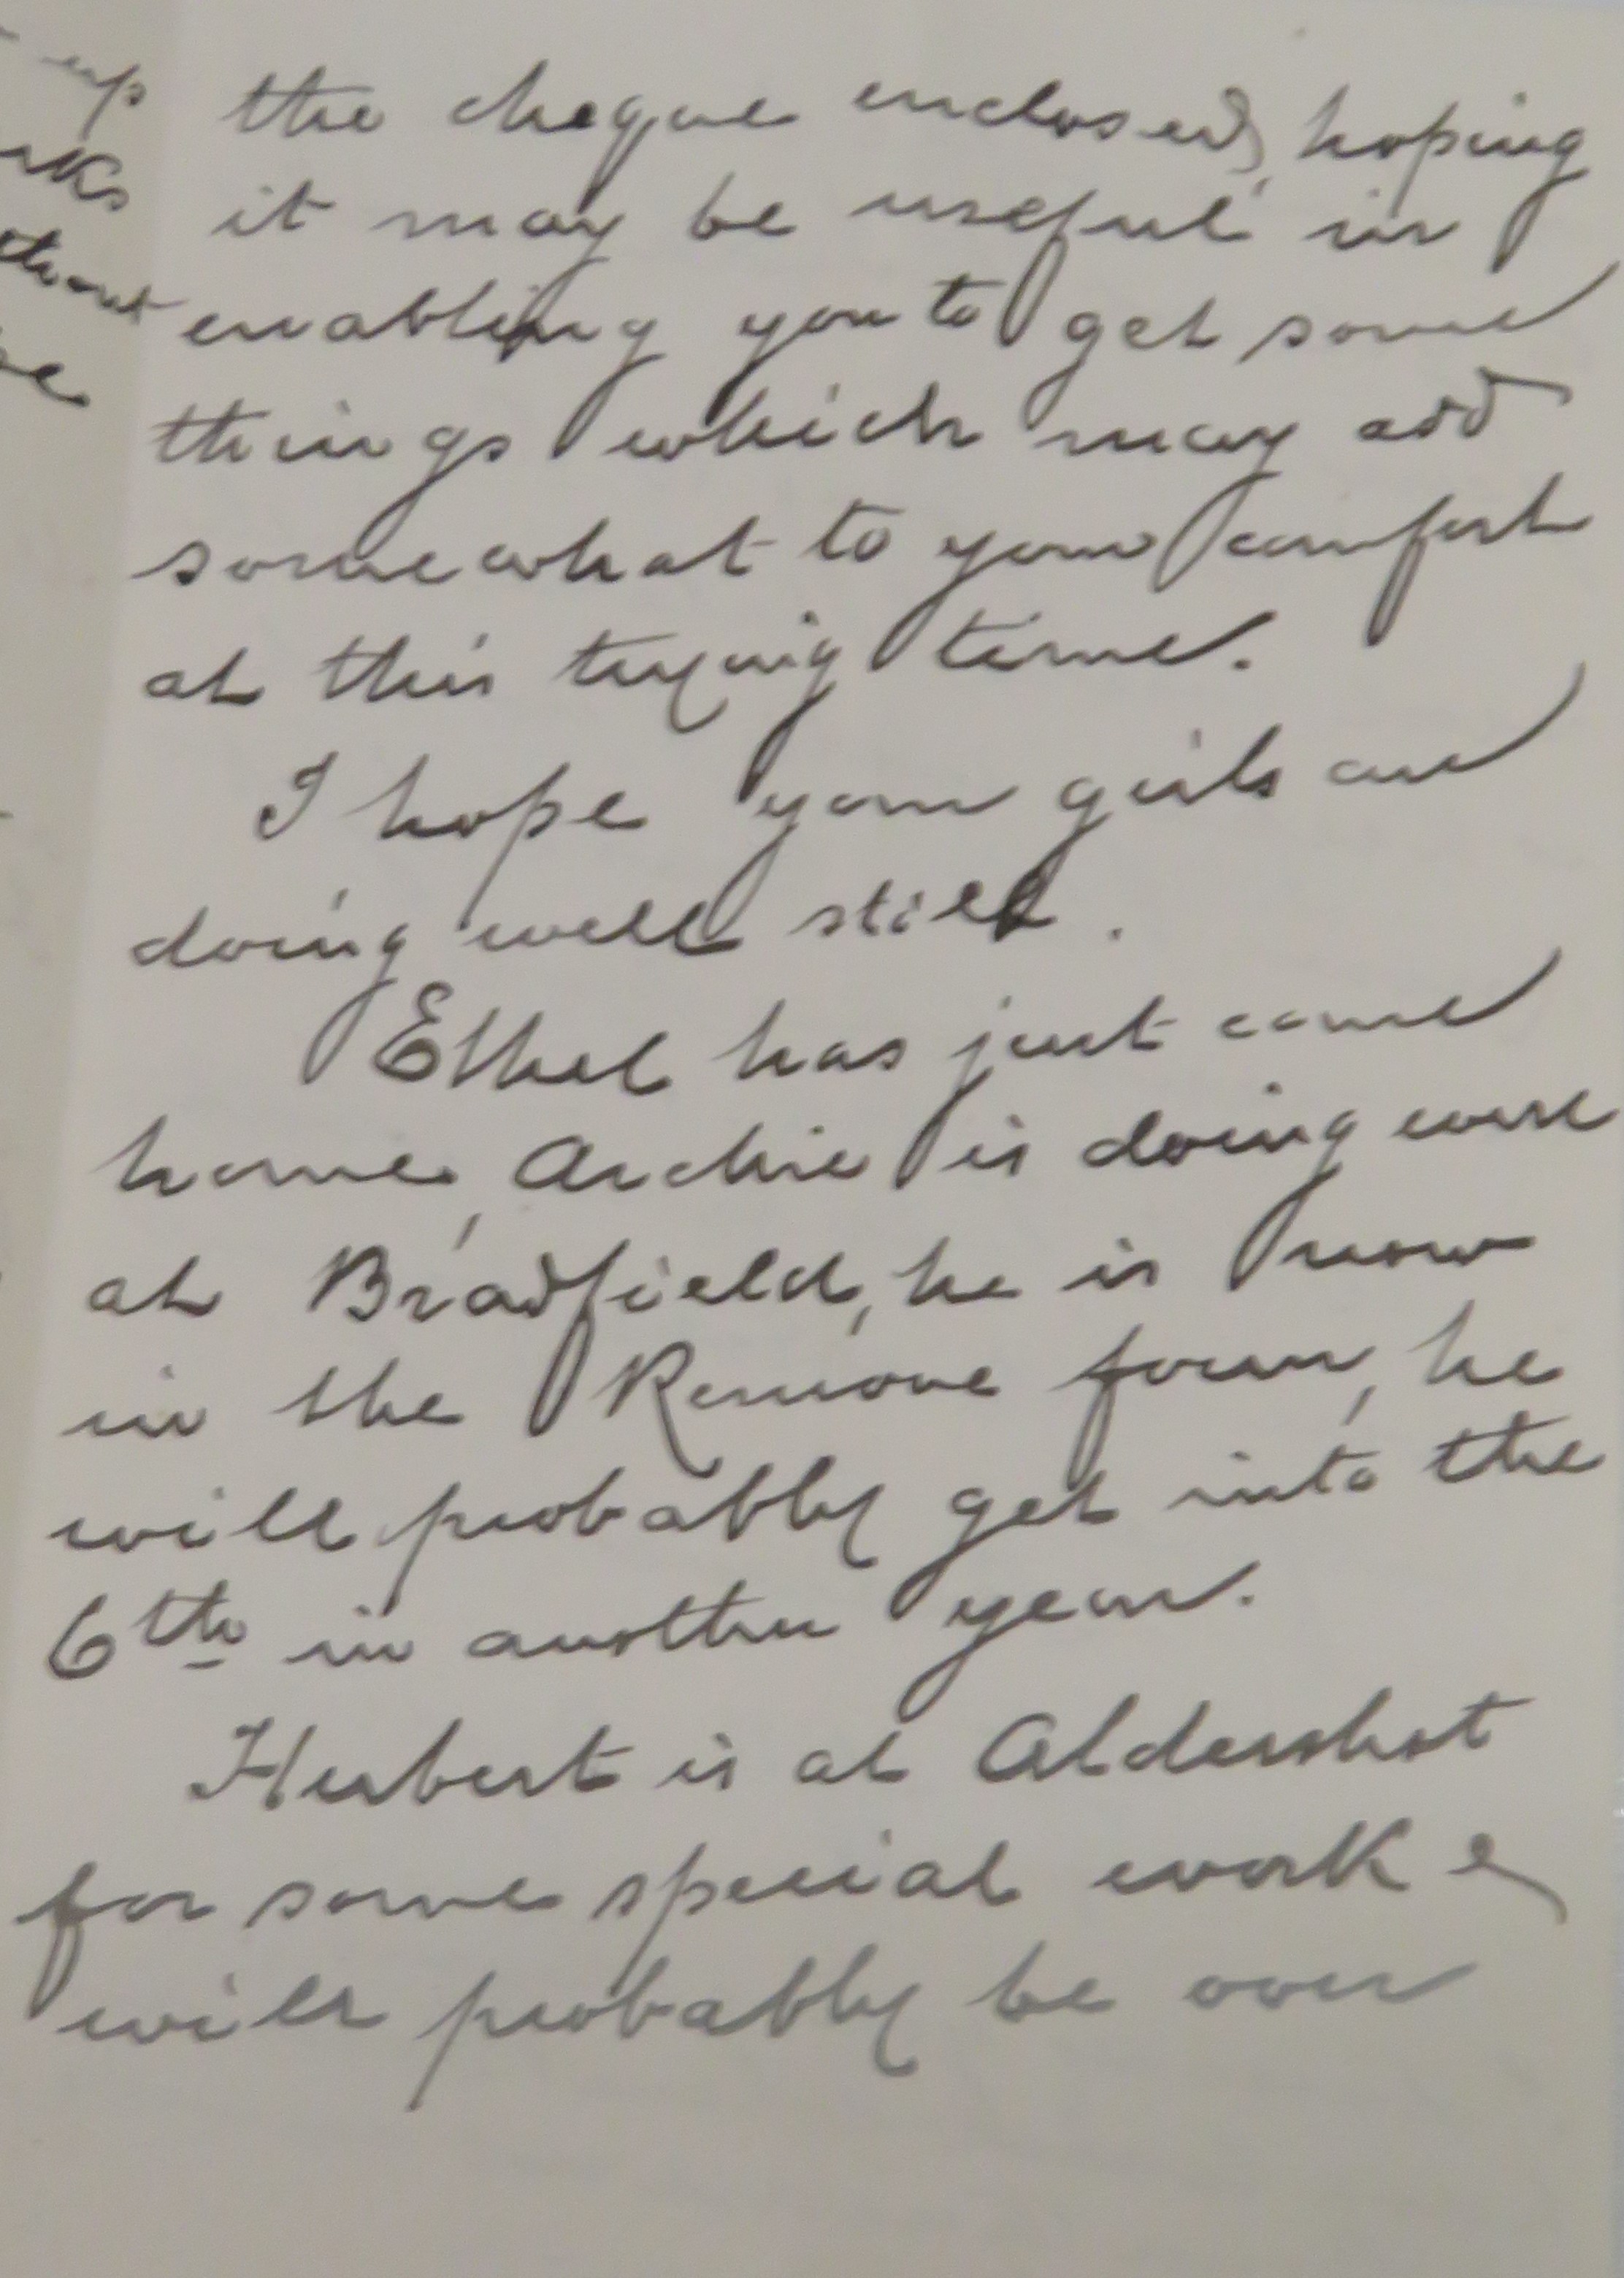 up
the cheque enclosed, hoping
it may be useful in
enabling you to get some
things which may add
somewhat to your comfort
at this trying time.
I hope your girls are
doing well still.
Ethel has just come
home, Archie is doing well
at Bradfield, he is now
in the Remove form, he
will probably get into the
6th in another year.
Herbert is at Aldershot
for some special work &
will probably be over